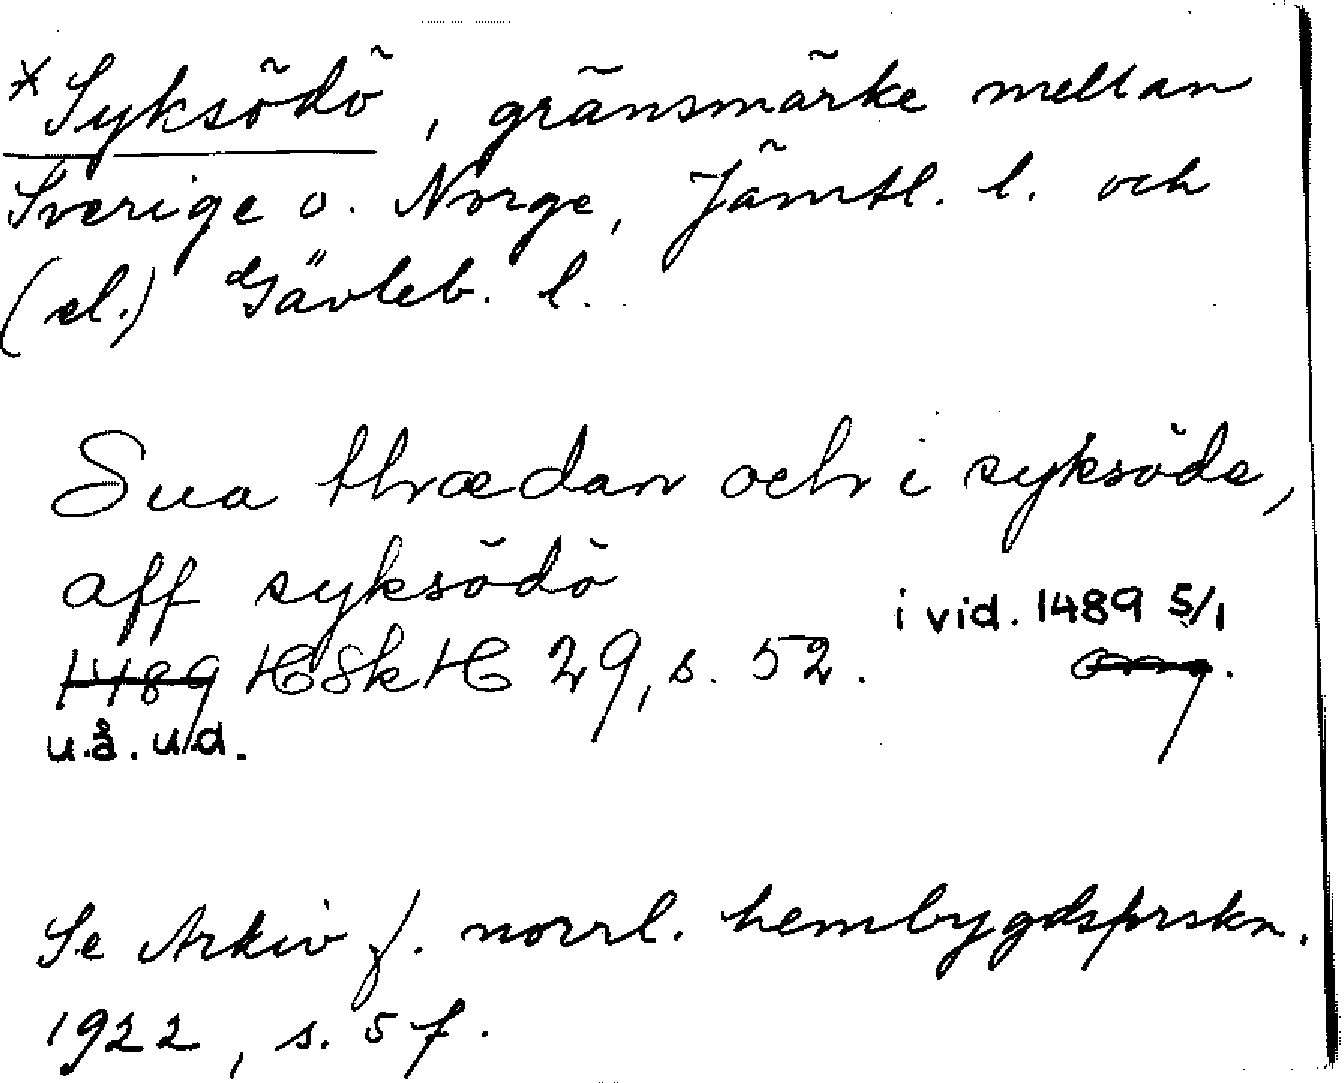 *Syksödö, gränsmärke mellan
Sverige o. Norge, Jämtl. l. och
(el.) Gävleb. l.
Sua thrædan och i syksöde,
aff syksödö
i vid. 1489 5/1
1489 HSkH 29, s. 52. omg.
u.å. u.d.
Se Arkiv f. norrl. hembygdsforskn.
1922, s. 5 f.